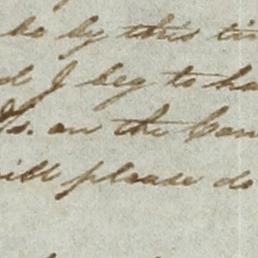 be by this ti
d I beg to ha
s. on the Con
ill please do